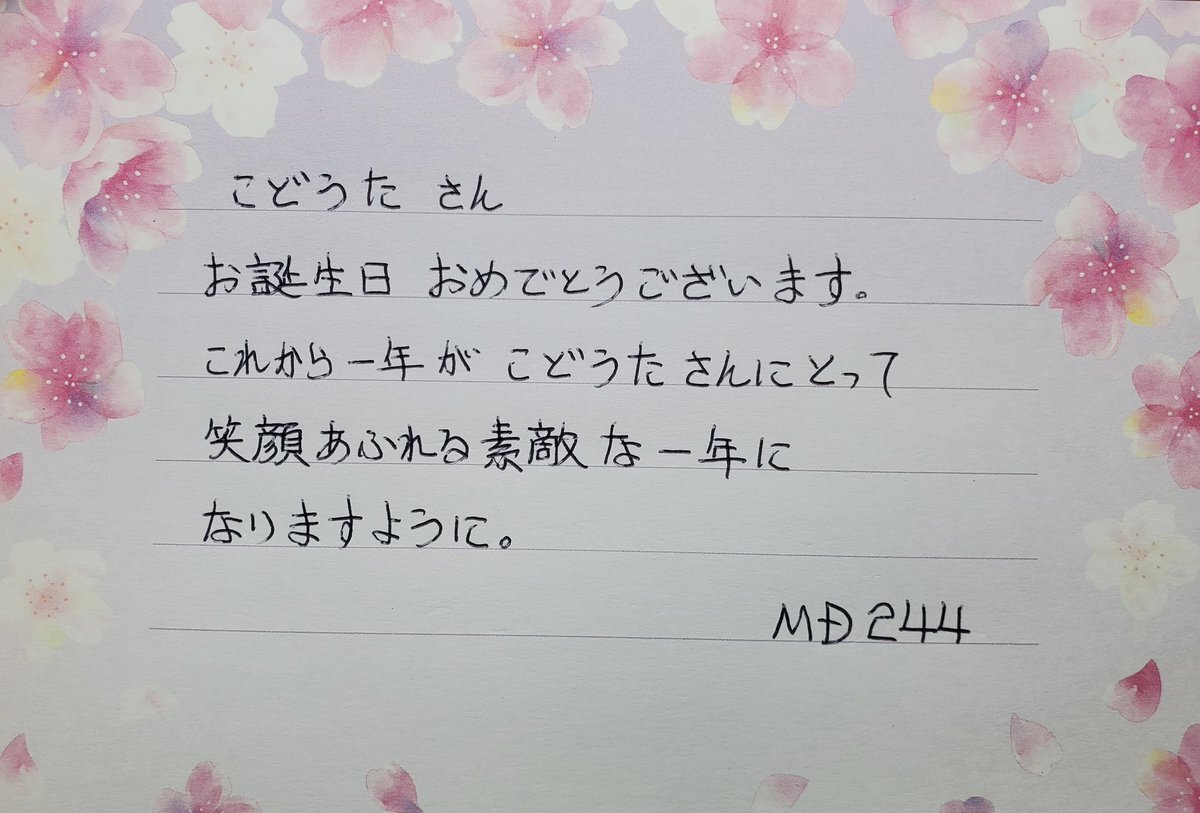 こどうた さん
お誕生日 おめでとうございます。
これから一年が こどうた さんにとって
笑顔あふれる素敵な一年に
なりますように。
MD244